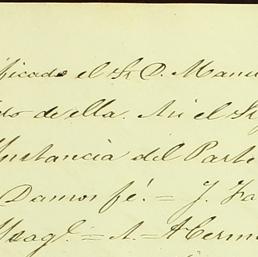 ificado el Sr. D. Manu
do de ella. Ni el Sr
Instancia del Parti
Damos fé. = J. Fa
Meagl. = A. = Herm